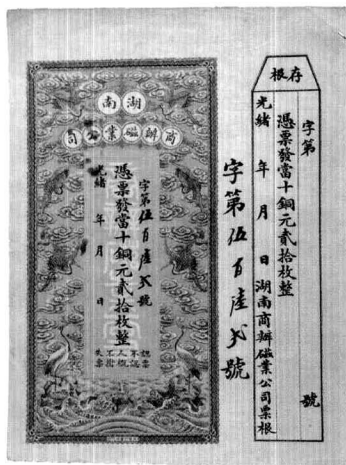 存根
字第　　號
憑票發當十銅元貳拾枚整
光緒　年　月　日湖南商辦磁業公司票根
字第伍百陸弍號
湖南
商辦磁業公司
字第伍百陸弍號
憑票發當十銅元貳拾枚整
光緒　年　月　日
認票
不認
人概
不掛
失票